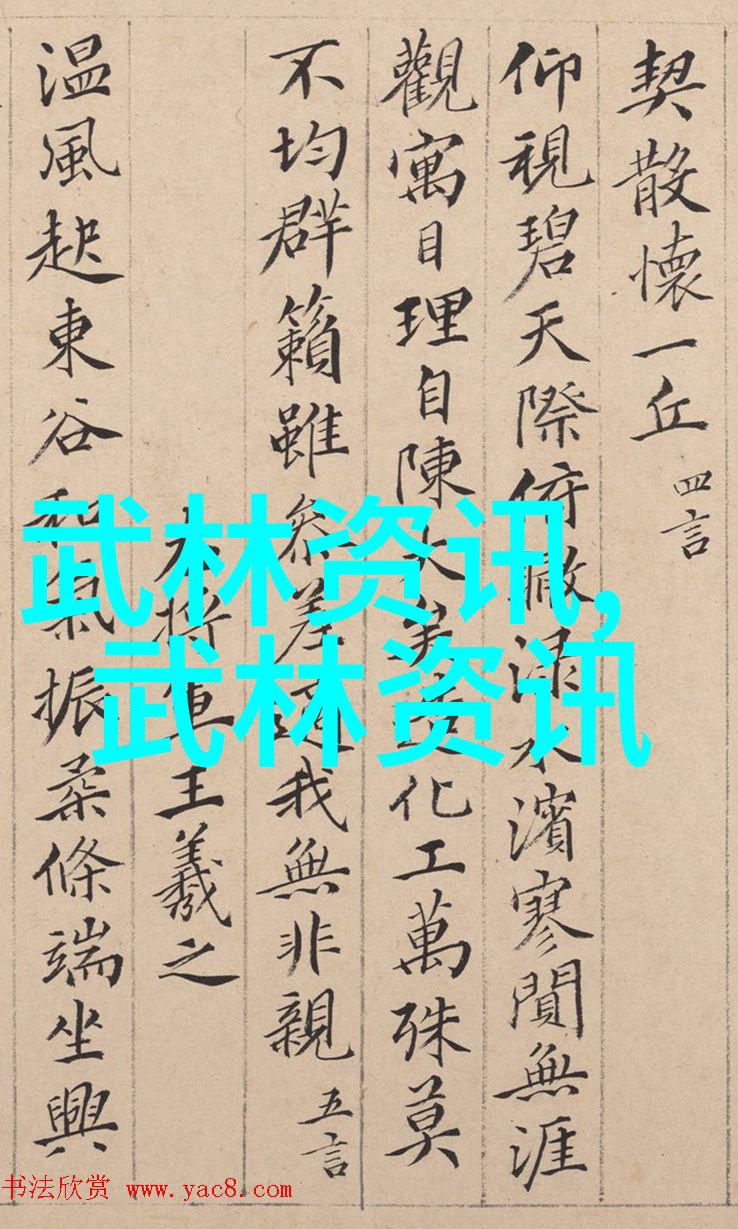 契散懷一丘 四言
仰視碧天際俯瞰淥水濱寥閴無涯
觀寓目理自陳大矣造化工萬殊莫
不均群籟雖參差適我無非親 五言
大將軍王羲之
温風起東谷和氣振柔條端坐興
武林资讯,
武林资讯
书法欣赏 www.yac8.com